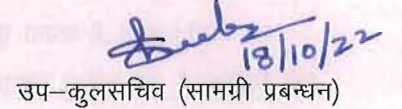 18/10/22
उप–कुलसचिव (सामग्री प्रबन्धन)